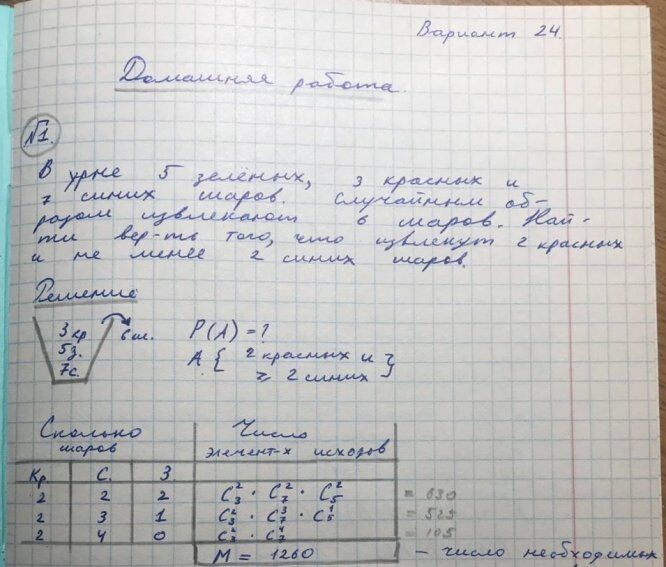 Вариант 24.
Домашняя работа.
№1.
В урне 5 зелёных, 3 красных и
7 синих шаров. Случайным об-
разом извлекают 6 шаров. Най-
ти вер-ть того, что извлекут 2 красных
и не менее 2 синих шаров.
Решение
3 кр 6 ш. P(A) = ?
5 з. A { 2 красных и
7 с. ≥ 2 синих }
Сколько шаров Число элемент-х исходов
Кр С. З
2 2 2 C₃² · C₇² · C₅² = 630
2 3 1 C₃² · C₇³ · C₅¹ = 525
2 4 0 C₃² · C₇⁴ = 105
M = 1260 – число необходимых